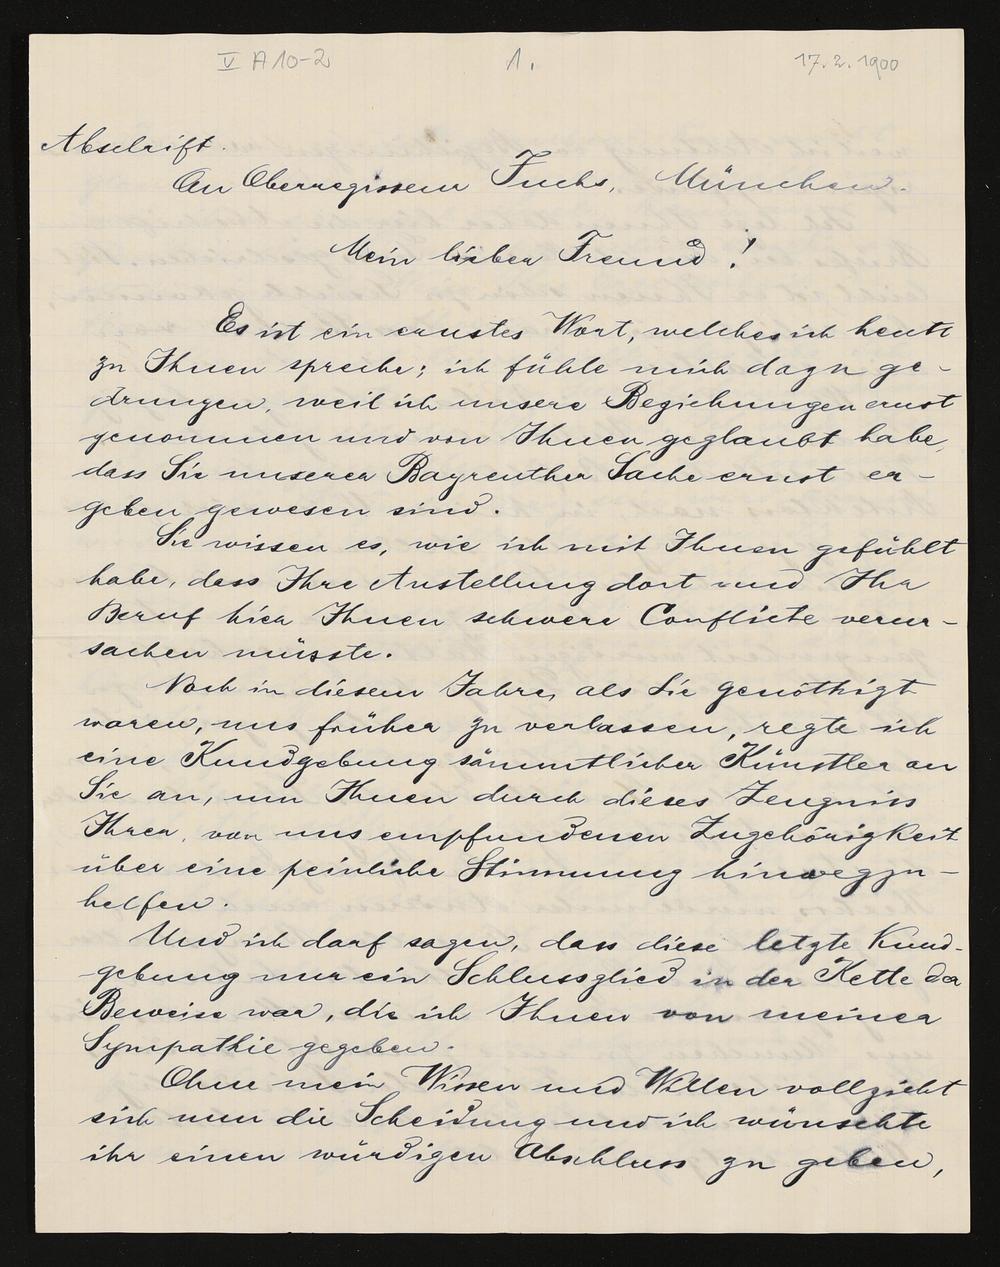 V A 10-2 1. 17.2.1900
Abschrift.
An Oberregisseur Fuchs, München.
Mein lieber Freund!
Es ist ein ernstes Wort, welches ich heute
zu Ihnen spreche; ich fühle mich dazu ge-
drungen, weil ich unsere Beziehungen ernst
genommen und von Ihnen geglaubt habe,
dass Sie unserer Bayreuther Sache ernst er-
geben gewesen sind.
Sie wissen es, wie ich mit Ihnen gefühlt
habe, dass Ihre Anstellung dort und Ihr
Beruf hier Ihnen schwere Conflicte verur-
sachen müsste.
Noch in diesem Jahre, als Sie genöthigt
waren, uns früher zu verlassen, regte ich
eine Kundgebung sämmtlicher Künstler an
Sie an, um Ihnen durch dieses Zeugniss
Ihrer, von uns empfundenen Zugehörigkeit
über eine peinliche Stimmung hinwegzu-
helfen.
Und ich darf sagen, dass diese letzte Kund-
gebung nur ein Schlussglied in der Kette der
Beweise war, die ich Ihnen von meiner
Sympathie gegeben.
Ohne mein Wissen und Willen vollzieht
sich nun die Scheidung und ich wünschte
ihr einen würdigen Abschluss zu geben,